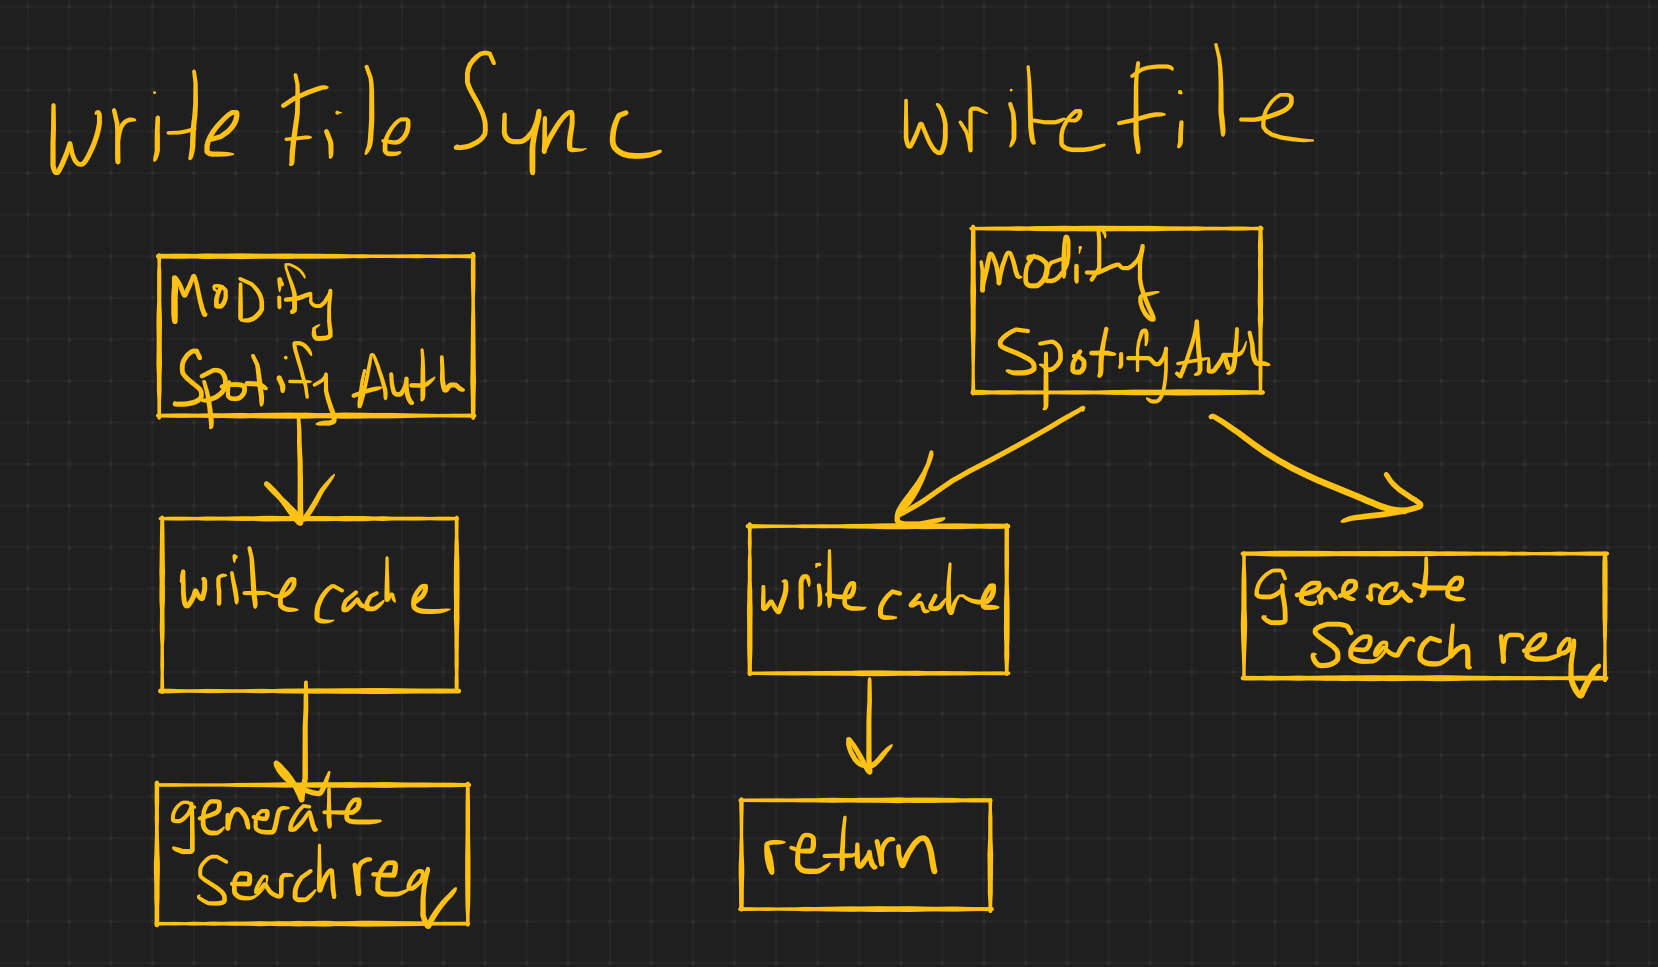 writeFileSync
writeFile
MoDify
Spotify Auth
write cache
generate
Search req
modify
Spotify Auth
write cache
return
generate
Search req